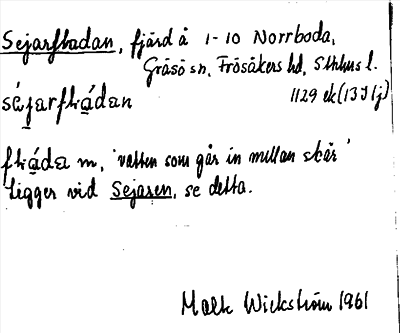 Sejarfladan, fjärd å 1-10 Norrboda,
Gräsö sn, Frösåkers hd, Sthlms l.
séjarflàdan 1129 ek (13 I 1j)
flàda m, 'vatten som går in mellan skär'
Ligger vid Sejaren, se detta.
Malte Wickström 1961